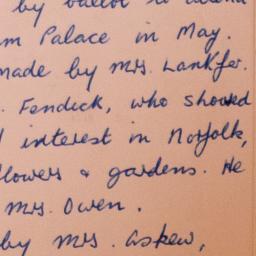 by ballot to attend
m Palace in May.
made by Mrs. Lankfer.
. Fendick, who showed
interest in Norfolk,
flowers & gardens. He
Mrs. Owen.
by Mrs. Askew,